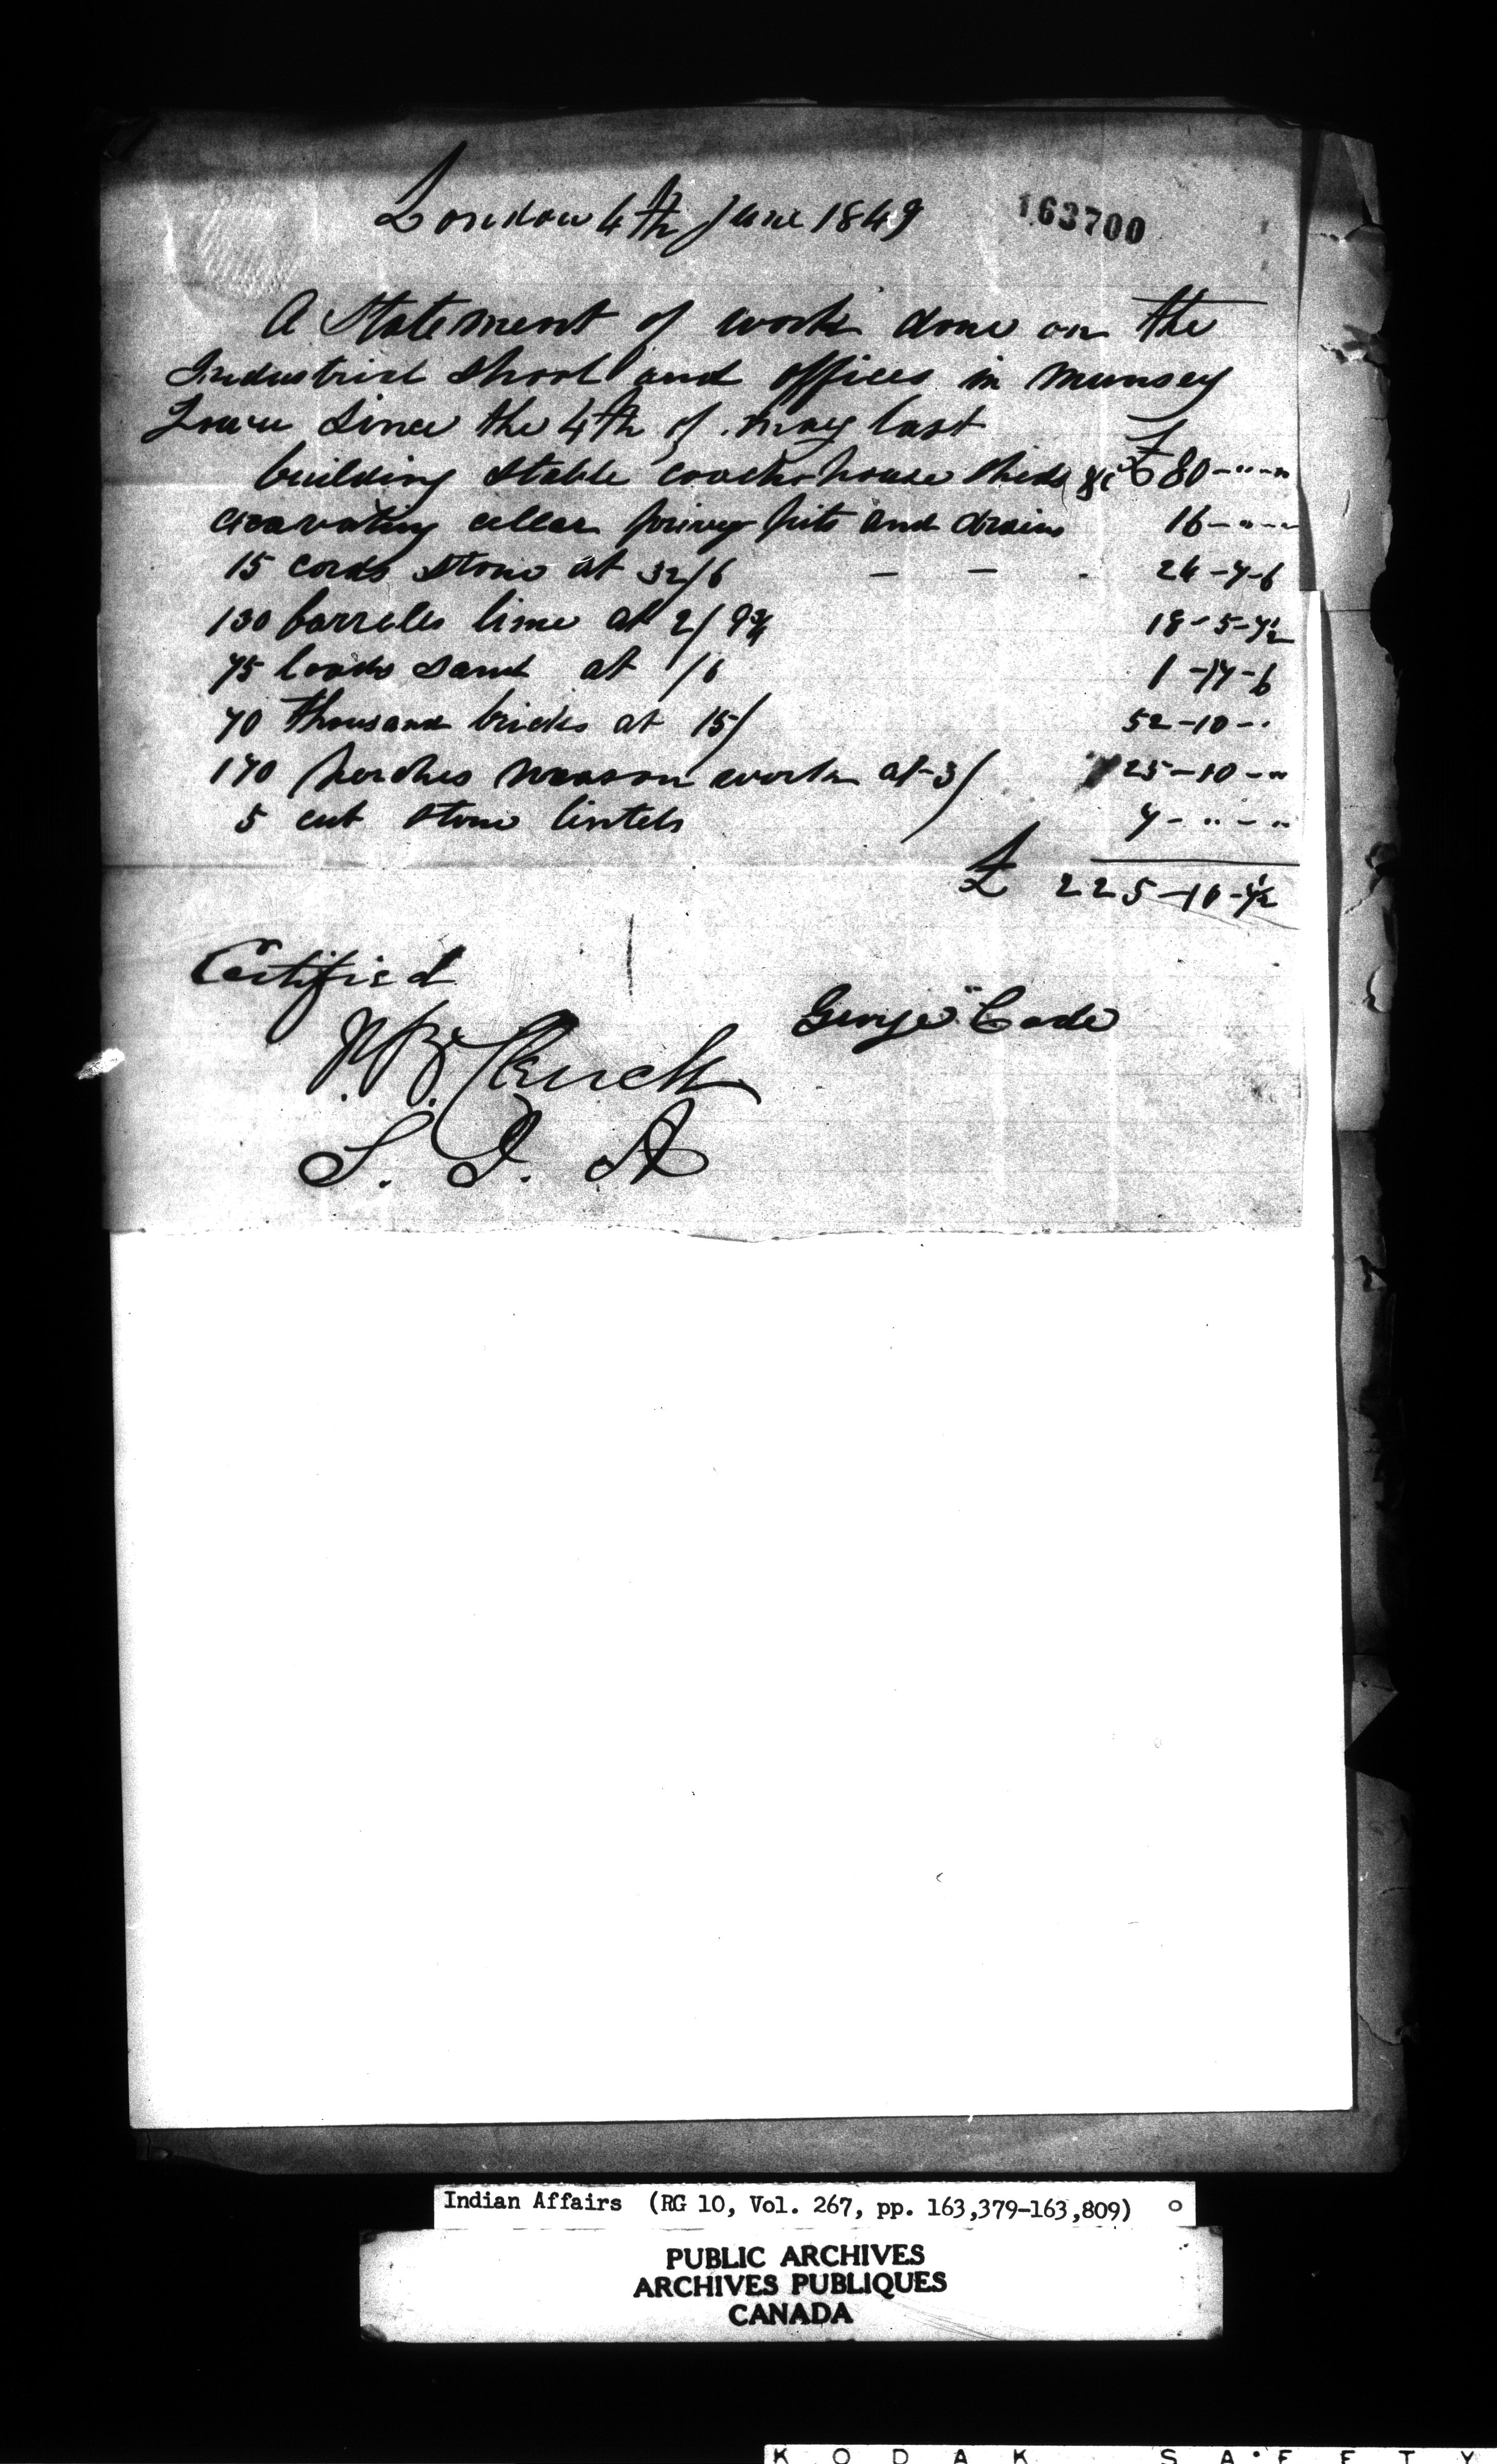 London 4th June 1849
163700
A Statement of work done on the
Industrial Shool and offices in Munsey
Town Since the 4th of may last
£
building stable coach house sheds &c £ 80-"-"
excavating cellar privy pits and drains 16-"-"
15 cords stone at 32/6 - - - 24-7-6
130 barreles lime at 2/9¾ 18-5-7½
75 loads sand at /6 1-17-6
70 thousand bricks at 15/ 52-10-"
170 perches mason work at 3/ 25-10-"
5 cut stone lintels 7-"-"
£ 225-10-7½
Certified
George Code
J. B. Clench
S. I. A
Indian Affairs (RG 10, Vol. 267, pp. 163,379-163,809) O
PUBLIC ARCHIVES
ARCHIVES PUBLIQUES
CANADA
KODAK SAFETY